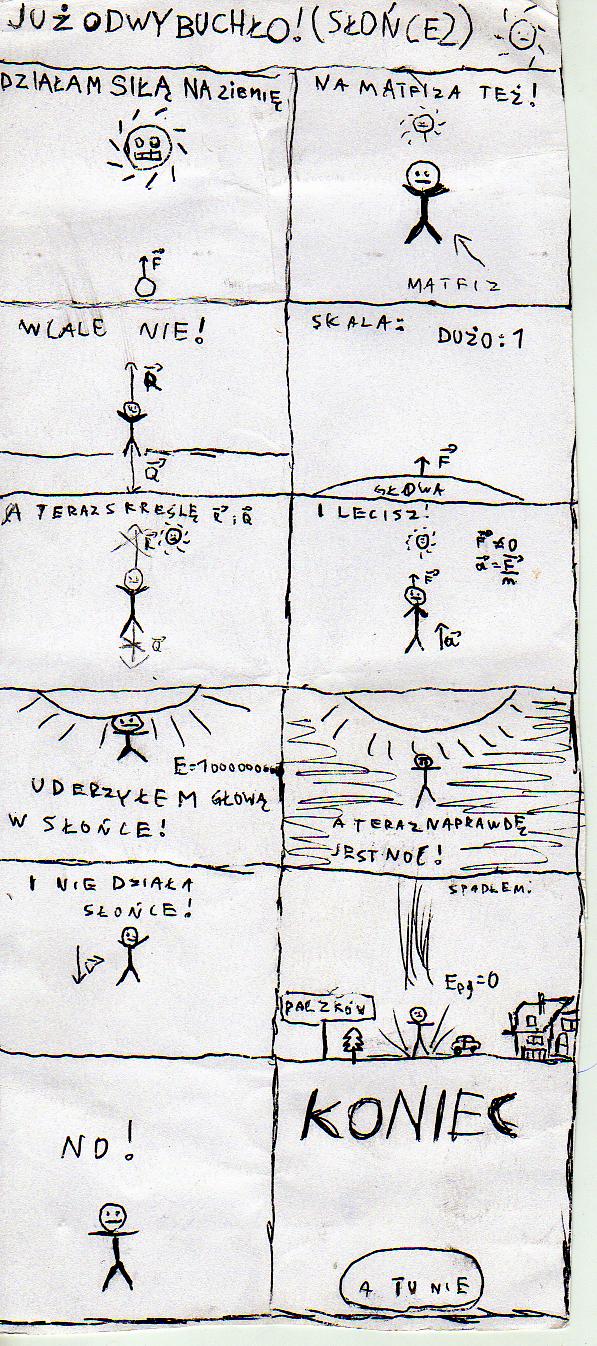 JUŻ ODWYBUCHŁO! (SŁOŃCE2)
DZIAŁAM SIŁĄ NA ZIEMIĘ
F
NA MATFIZA TEŻ!
MATFIZ
WCALE NIE!
R
Q
SKALA:
DUŻO:1
F
GŁOWA
A TERAZ SKREŚLĘ R i Q
R
Q
I LECISZ!
F≠0
a=F/m
F
a
E=100000000
UDERZYŁEM GŁOWĄ
W SŁOŃCE!
A TERAZ NAPRAWDĘ
JEST NOC!
I NIE DZIAŁA
SŁOŃCE!
SPADŁEM.
Epg=0
PACZKÓW
NO!
KONIEC
A TU NIE